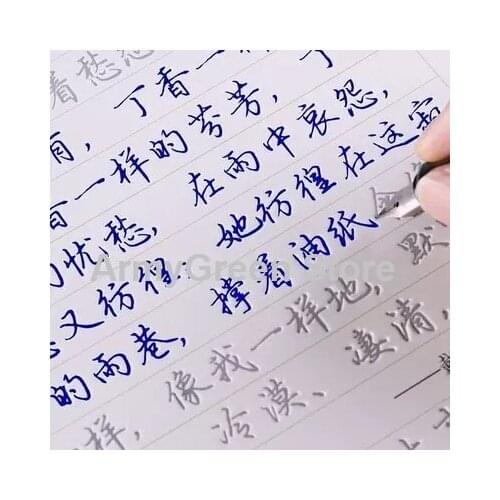 着愁怨
有,丁香一
香一样的芬芳,丁
的忧愁,在雨中哀怨,
又彷徨;她彷徨在这寂
的雨巷,撑着油纸
样,像我一样地,默
冷漠、凄清,
ArmyGreen Store